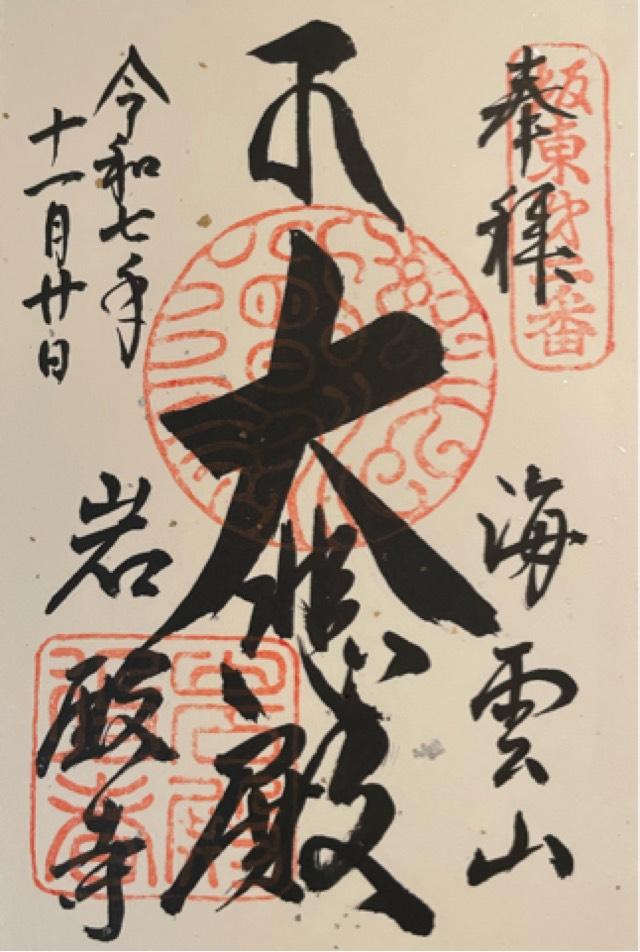 奉拝
坂東第二番
海雲山
大悲殿
令和七年
十一月廿日
岩殿寺